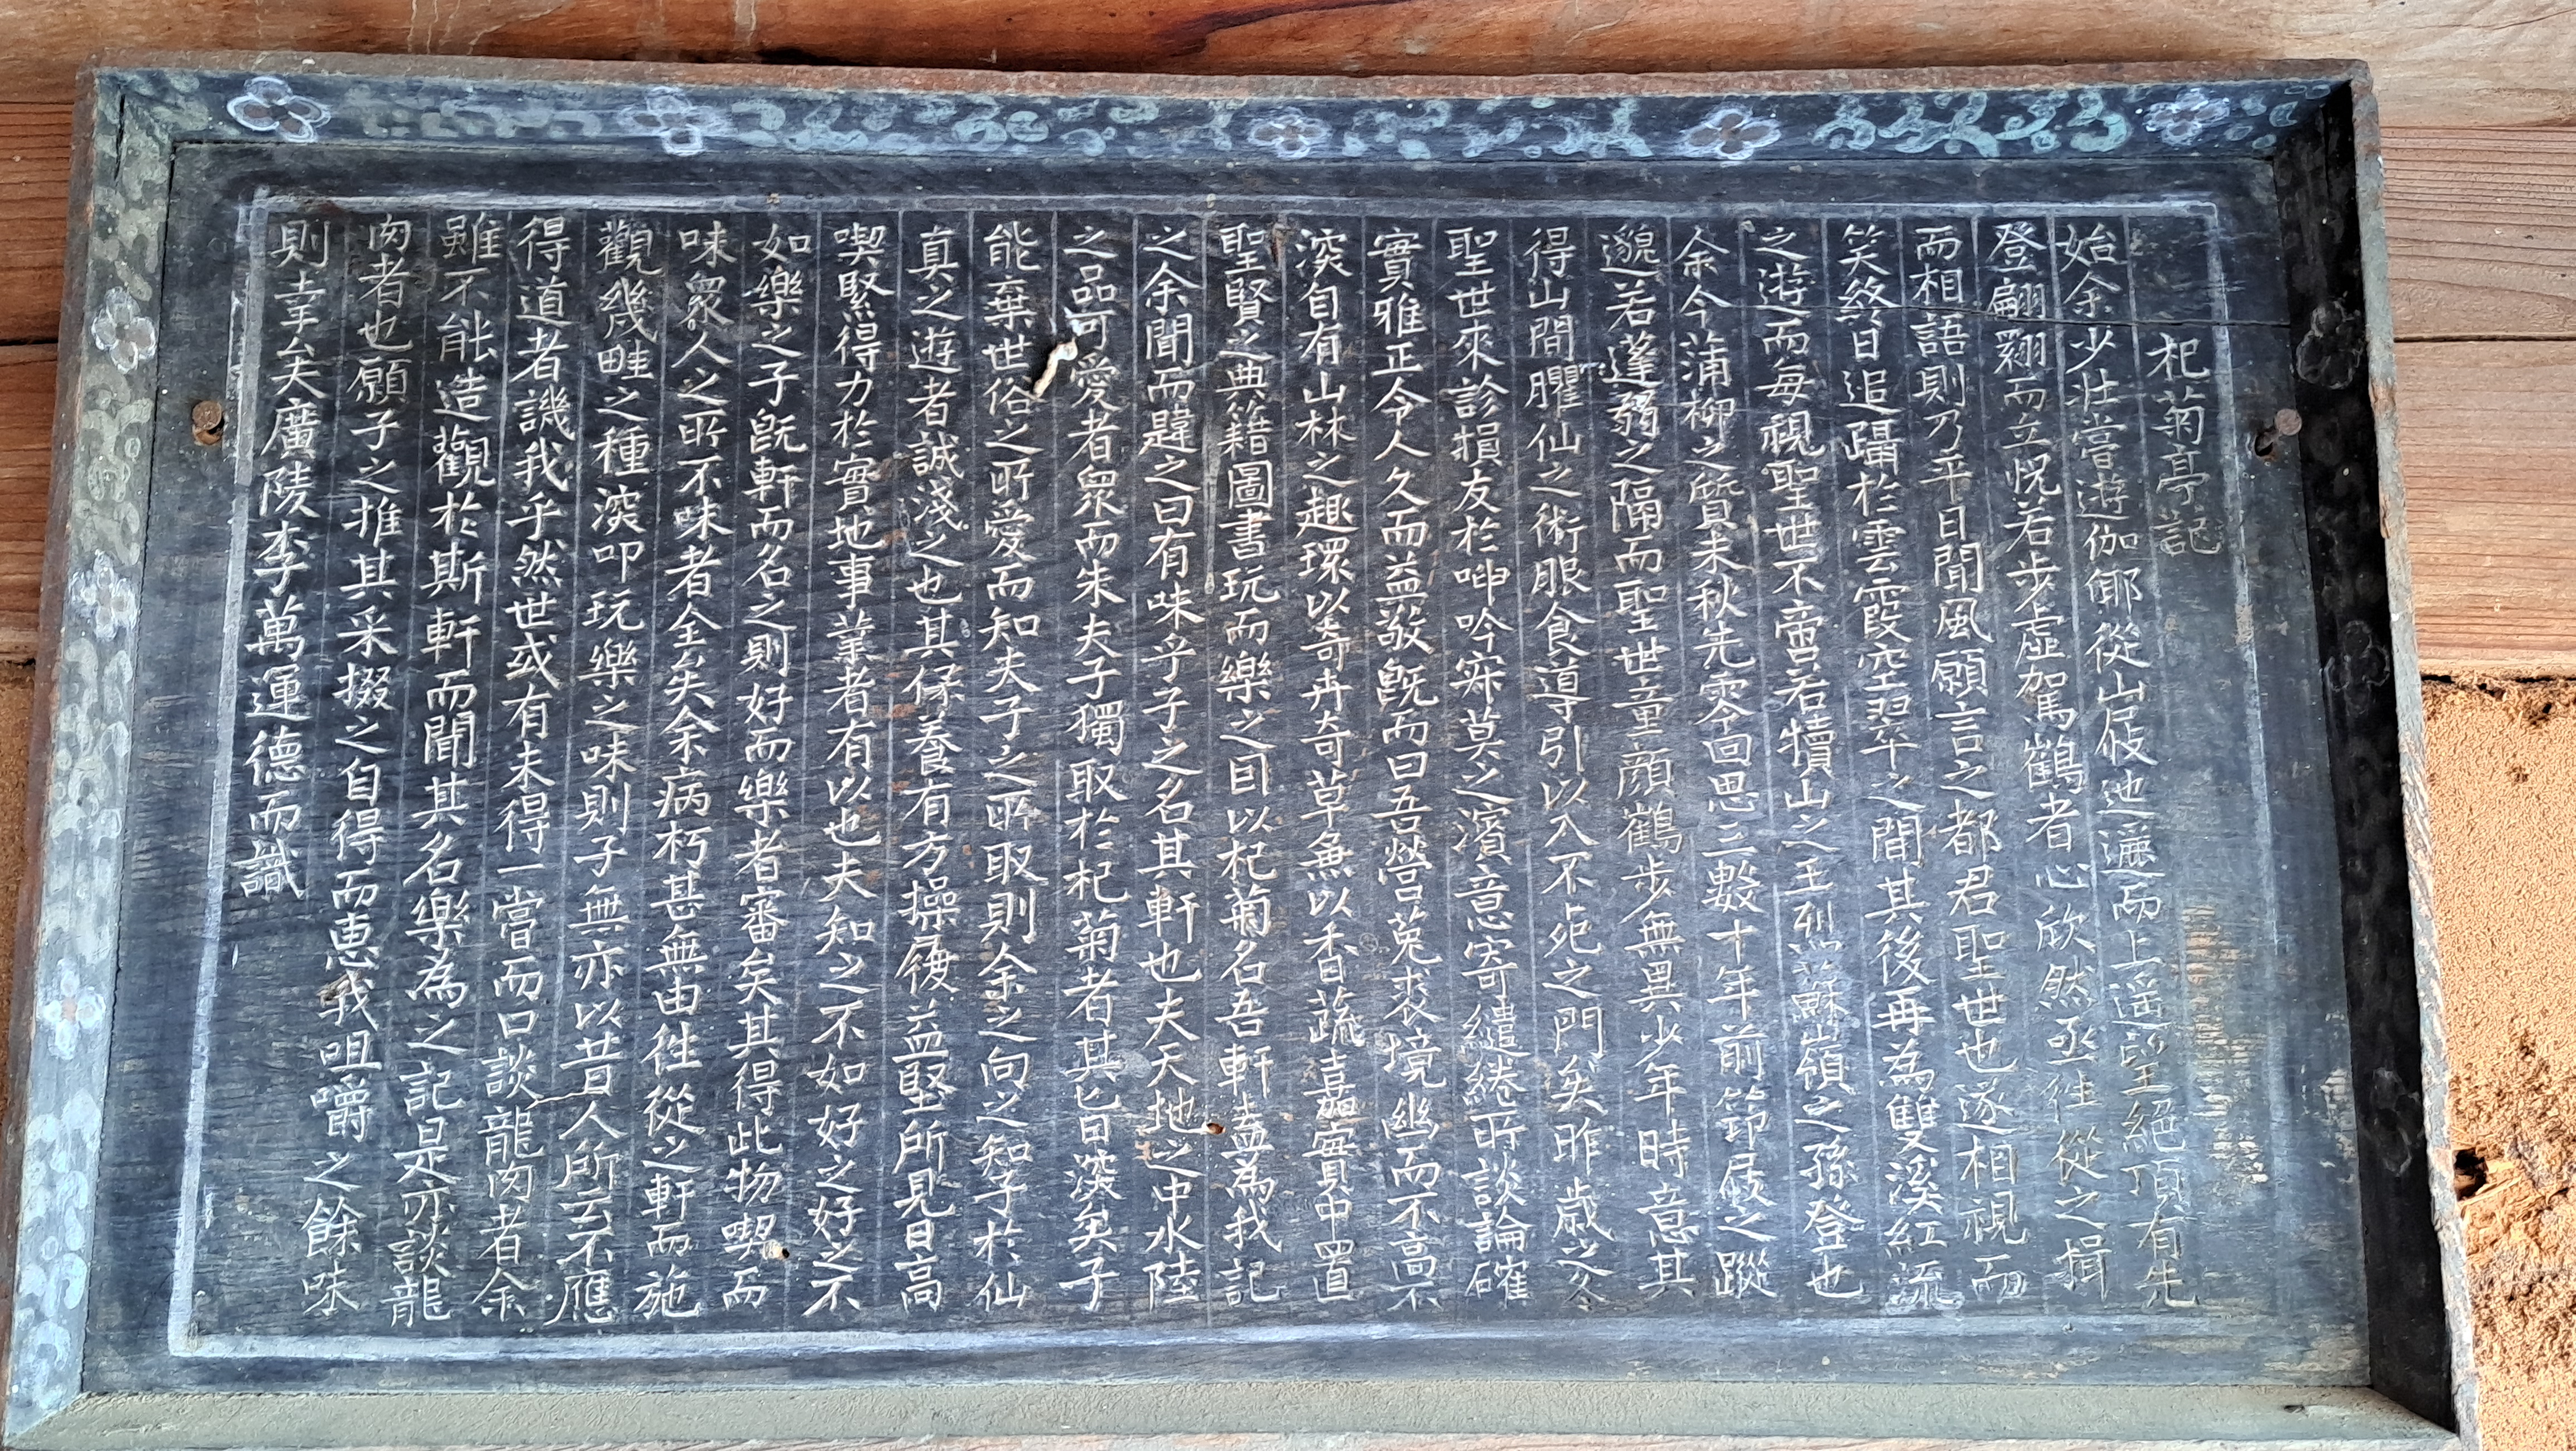 杞菊亭記
始余少壯嘗遊伽倻從山𡲆迆邐而上遥望絕頂有先
登翩翾而立怳若步虛駕鶴者心欣然丞徃從之揖
而相語則乃平日聞風願言之都君聖世也遂相視而
笑終日追躡於雲霞空翠之間其後再為雙溪紅流
之遊而每視聖世不啻若犢山之王烈蘇嶺之孫登也
余今蒲柳之質未秋先零回思三數十年前筇屐之蹤
邈若蓬弱之隔而聖世童顔鶴步無異少年時意其
得山間臞仙之術服食導引以入不死之門矣昨歲之冬
聖世來診損友於呻吟寂莫之濱意寄繾綣所談論確
實雅正令人久而益敬旣而曰吾營菟裘境幽而不高不
深自有山林之趣環以奇卉奇草無以香蔬嘉實中置
聖賢之典籍圖書玩而樂之目以杞菊名吾軒盍為我記
之余聞而韙之曰有味乎子之名其軒也夫天地之中水陸
之品可愛者衆而朱夫子獨取於杞菊者其旨深矣子
能棄世俗之所愛而知夫子之所取則余之向之知子於仙
真之遊者誠淺之也其保養有方操履益堅所見日高
喫緊得力於實地事業者有以也夫知之不如好之好之不
如樂之子旣軒而名之則好而樂者審矣其得此物喫而
味衆人之所不味者全矣余病朽甚無由徃從之軒而施
觀幾畦之種深叩玩樂之味則子無亦以昔人所云不應
得道者譏我乎然世或有未得一嘗而口談龍肉者余
雖不能造觀於斯軒而聞其名樂為之記是亦談龍
肉者也願子之推其采掇之自得而惠我咀嚼之餘味
則幸矣廣陵李萬運德而識